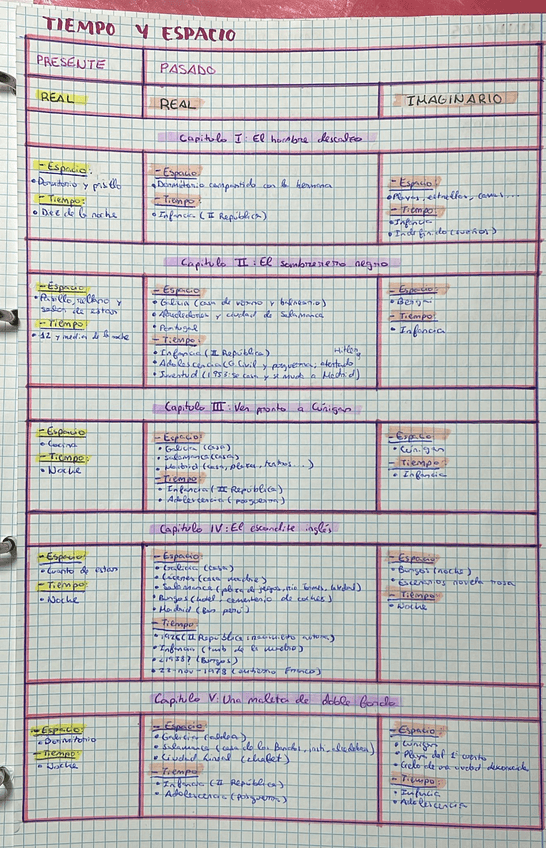 TIEMPO Y ESPACIO
PRESENTE
PASADO
REAL
REAL
IMAGINARIO
Capítulo I: El hombre descalzo
- Espacio:
• Dormitorio y pasillo
- Tiempo:
• Diez de la noche
- Espacio:
• Dormitorio compartido con la hermana
- Tiempo:
• Infancia (II República)
- Espacio:
• Playas, estrellas, camas...
- Tiempo:
• Infancia
• Indefinido (sueños)
Capítulo II: El sombrero negro
- Espacio
• Pasillo, y
salón de estar
- Tiempo
• 12 y media de la noche
- Espacio
• Galicia (casa de verano y balneario)
• Alrededores y ciudad de Salamanca
• Portugal
- Tiempo:
• Infancia (II República)
• Adolescencia (G. Civil y posguerra; Hitler
• Juventud (1953: se casa y se muda a Madrid)
- Espacio:
• Bergai
- Tiempo:
• Infancia
Capítulo III: Ven pronto a Cúnigan
- Espacio:
• Cocina
- Tiempo:
• Noche
- Espacio:
• Galicia (casa)
• Salamanca (casa)
• Madrid (casa, plaza, teatros...)
- Tiempo
• Infancia (II República)
• Adolescencia (posguerra)
- Espacio
• Cúnigan
- Tiempo:
• Infancia
Capítulo IV: El escondite inglés
- Espacio:
• Cuarto de estar
- Tiempo:
• Noche
- Espacio:
• Galicia (casa)
• Cáceres (casa madre)
• Salamanca (plaza de juegos, río Tormes,
• Burgos (hotel, cementerio de coches)
• Madrid (
- Tiempo
• 1926 (II República: nacimiento autora)
• Infancia
• (Burgos)
• 23-nov-1975 (entierro Franco)
- Espacio:
• Burgos (noche)
• Escenarios novela rosa
- Tiempo:
• Noche
Capítulo V: Una maleta de doble fondo
- Espacio:
• Dormitorio
- Tiempo:
• Noche
- Espacio
• Galicia (aldea)
• Salamanca (casa de los Bandos, inst.,
• Ciudad Lineal (chalet)
- Tiempo
• Infancia (II República)
• Adolescencia (posguerra)
- Espacio
• Cúnigan
• Playa del 1er cuento
• de una ciudad desconocida
- Tiempo:
• Infancia
• Adolescencia